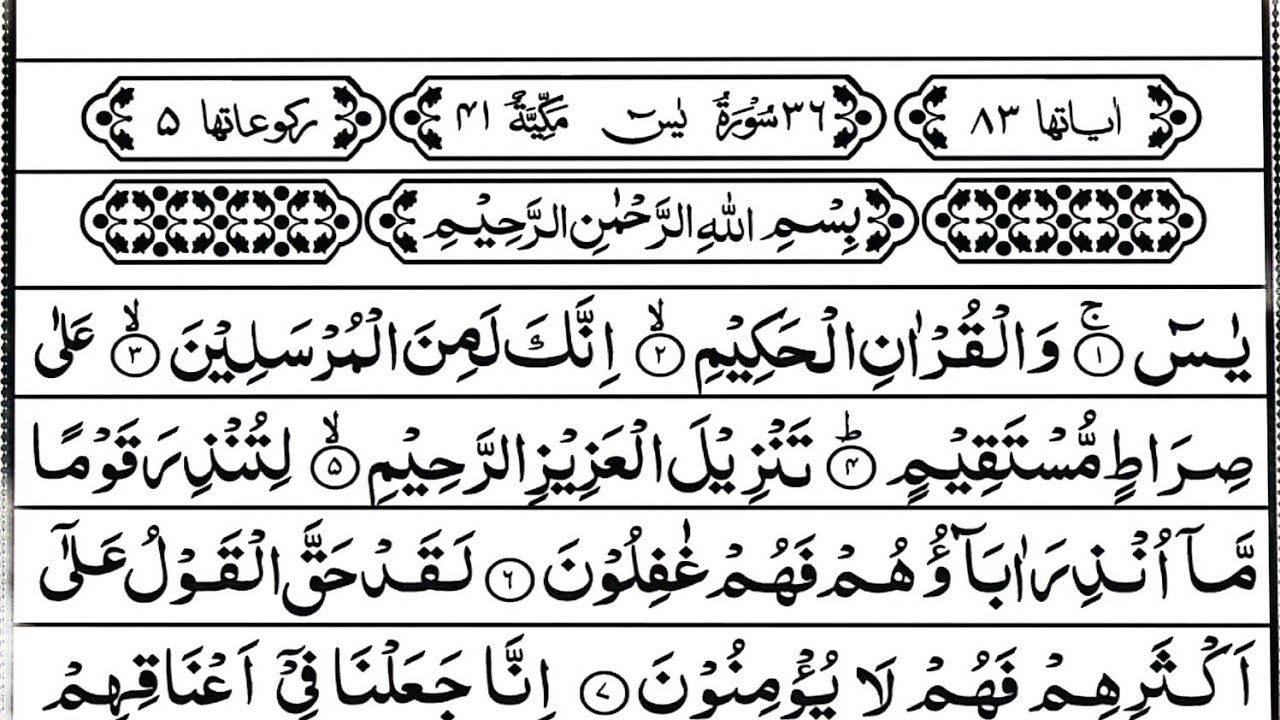 اٰیاتها ۸۳ ۳۶ سُوْرَةُ یٰسٓ مَكِّیَّةٌ ۴۱ ركوعاتها ۵
بِسْمِ اللهِ الرَّحْمٰنِ الرَّحِیْمِ
یٰسٓ ۚ﴿۱﴾ وَالْقُرْاٰنِ الْحَكِیْمِ ۙ﴿۲﴾ اِنَّكَ لَمِنَ الْمُرْسَلِیْنَ ۙ﴿۳﴾ عَلٰی
صِرَاطٍ مُّسْتَقِیْمٍ ؕ﴿۴﴾ تَنْزِیْلَ الْعَزِیْزِ الرَّحِیْمِ ۙ﴿۵﴾ لِتُنْذِرَ قَوْمًا
مَّاۤ اُنْذِرَ اٰبَآؤُهُمْ فَهُمْ غٰفِلُوْنَ ﴿۶﴾ لَقَدْ حَقَّ الْقَوْلُ عَلٰۤی
اَكْثَرِهِمْ فَهُمْ لَا یُؤْمِنُوْنَ ﴿۷﴾ اِنَّا جَعَلْنَا فِیْۤ اَعْنَاقِهِمْ